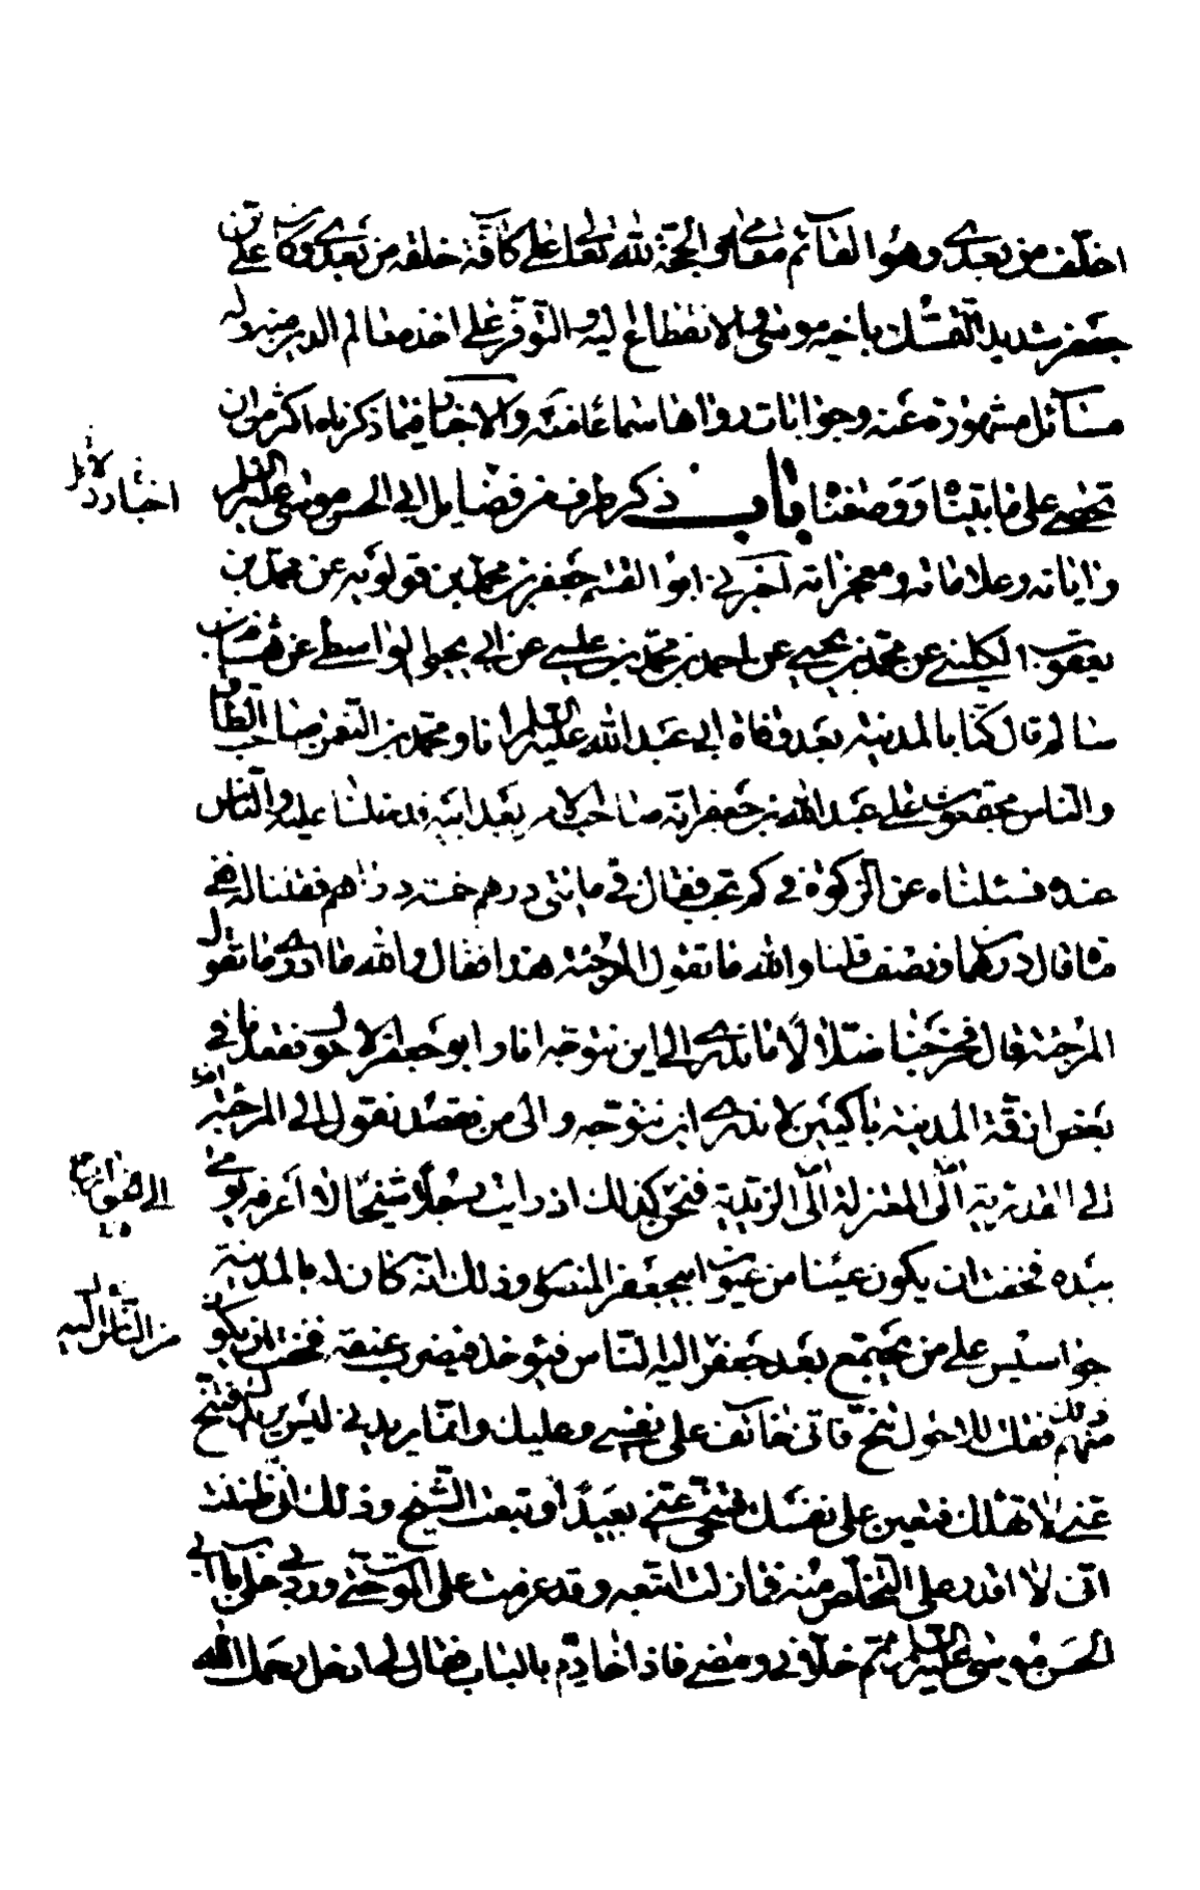 اخلّف من بعدي وهو القآئم مقامي والحجّة لله تعالى على كآفّة خلقه من بعدي وكان عليّ بن
جعفر شديد التّمسّك باخيه موسى والانقطاع اليه والتّوفّر على اخذ معالم الدين منه وله
مسآئل مشهورة عنه وجوابات رواها سماعا منه والاخبار فيما ذكرناه اكثر من ان
تحصى على ما بيّنّاه ووصفناه باب ذكر طرف من فضايل ابي الحسن موسى عليه السّلم
واياته وعلاماته ومعجزاته اخبرني ابو القسم جعفر بن محمّد بن قولويه عن محمّد بن
يعقوب الكليني عن محمّد بن يحيى عن احمد بن محمّد بن عيسى عن ابي يحيى الواسطي عن هشام بن
سالم قال كنّا بالمدينة بعد وفاة ابي عبد الله عليه السّلم انا ومحمّد بن النّعمن صاحب الطّاق
والنّاس مجتمعون على عبد الله بن جعفر انّه صاحب الامر بعد ابيه فدخلنا عليه والنّاس
عنده فسئلناه عن الزّكوة في كم تجب فقال في مائتي درهم خمسة دراهم فقلنا له ففي
مائة قال درهما ونصف قلنا والله ما تقول المرجئة هذا فقال والله ما ادري ما تقول
المرجئة قال فخرجنا ضلّالا لا ندري الى اين نتوجّه انا وابو جعفر الاحول فقعدنا في
بعض ازقّة المدينة باكيين لا ندري اين نتوجّه والى من نقصد نقول الى المرجئة ام
الى القدريّة الى المعتزلة الى الزّيديّة فنحن كذلك اذ رايت رجلا شيخا لا اعرفه يومي
بيده فخفت ان يكون عينا من عيون ابي جعفر المنصور وذلك انّه كان له بالمدينة
جواسيس على من يجتمع بعد جعفر اليه النّاس فيؤخذ فيضرب عنقه فخفت ان يكون
منهم فقلت للاحول تنحّ فانّي خائف على نفسي وعليك وانّما يريدني ليس يريدك فتنحّ
عنّي لا تهلك فتعين على نفسك فتنحّى عنّي بعيدا وتبعت الشّيخ وذلك انّي ظننت
انّي لا اقدر على التّخلّص منه فما زلت اتبعه وقد عزمت على الموت حتّى ورد بي على باب ابي
الحسن موسى عليه السّلم ثمّ خلّاني ومضى فاذا خادم بالباب فقال لي ادخل رحمك الله